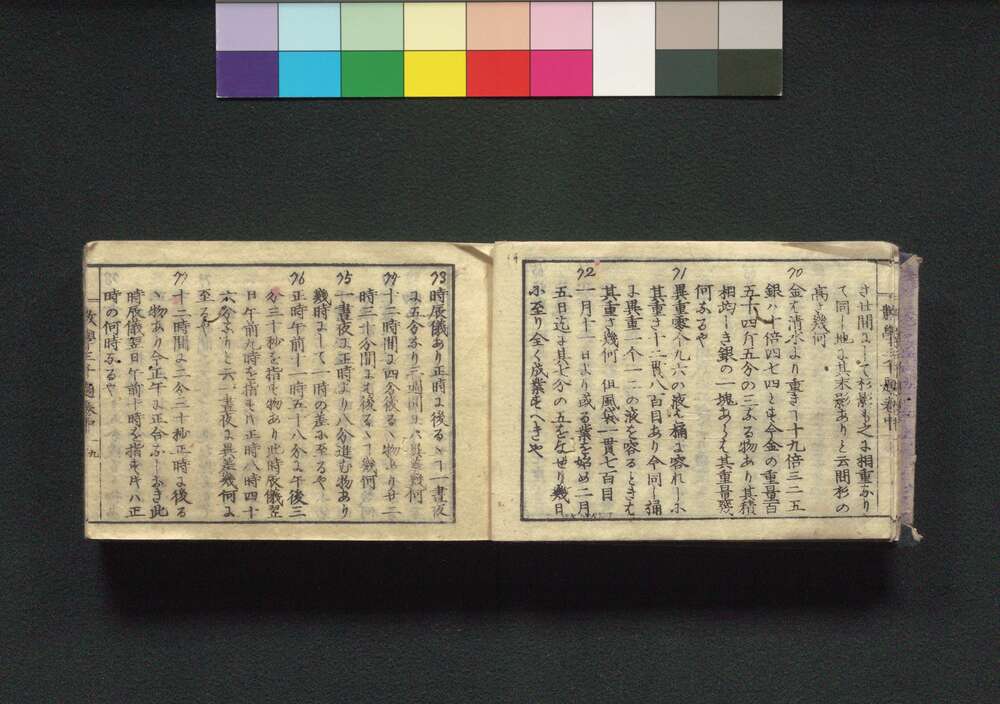 さは間にして杉影もへに相重なり
て同し地に其末影ありと云問杉の
高さ幾何
70
金は清水より重き十九倍三二五
銀ハ十倍四七四とす今金の重量百
五十四斤五分の三なる物あり其積
相均しき銀の一塊あらは其重量幾
何なるや
71
異重零个九六の液を桶に容れしに
其重さ十二貫八百目あり今同し桶
に異重一个一二の液を容るときは
其重さ幾何 但風袋一貫七百目
72
一月十一日より或る業を始め二月
五日迄に其七分の五をなせり幾日
に至り全く成業すへきや
73
時辰儀あり正時に後るゝ一昼夜
に五分なり
74
十二時間に四分後るゝ物あり廿二
時三十分間には後るゝ幾何
75
一昼夜に正時より八分進む物あり
幾時にして一時の差に至るや
76
正時午前十一時五十八分に午後三
分三十秒を指す物あり此時辰儀翌
日午前九時を指す片正時八時四十
六分なりと云一昼夜に異差幾何に
至るや
77
十二時間に二分三十秒正時に後る
ゝ物あり今正午に正合なしおき此
時辰儀翌日午前十時を指す片ハ正
時の何時なるや
九